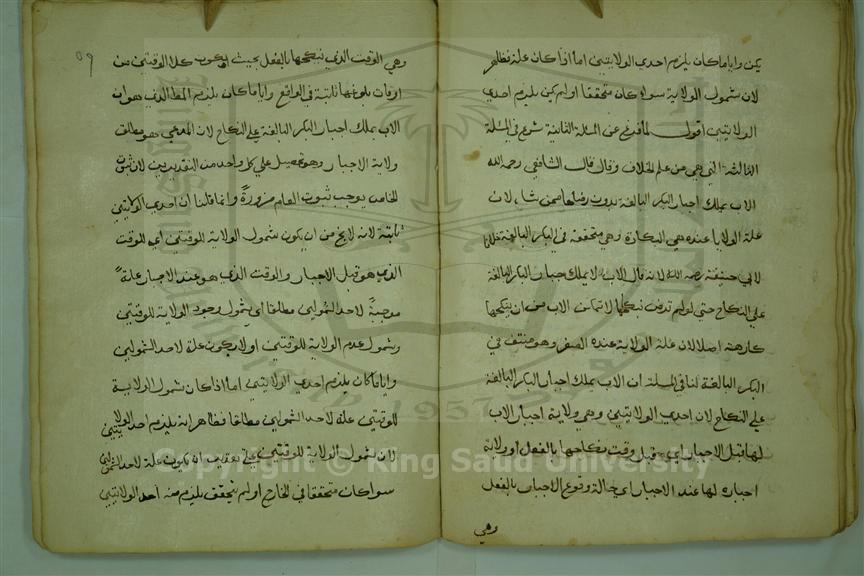 يكن واياما كان يلزم احدي الولايتين اما اذا كان علة فظاهر
لان شمول الولاية سواء كان متحققا او لم يكن يلزم احدي
الولايتين اقول لما فرغ عن المسئلة الثانية شرع في المسئلة
الثالثة التي هي من علم الخلاف وقال قال الشافعي رحمه الله
الاب يملك اجبار البكر البالغة بدون رضاها ممن شاء لان
علة الولاية عنده هي البكارة وهي متحققة في البكر البالغة خلافا
لابي حنيفة رحمه الله لانه قال الاب لا يملك اجبار البكر البالغة
علي النكاح حتي لو لم ترض نكحها لا تمكن الاب من ان ينكحها
كارهة اصلا لان علة الولاية عنده الصغر وهو منتف في
البكر البالغة لنا في المسئلة ان الاب يملك اجبار البكر البالغة
علي النكاح لان احدي الولايتين وهي ولاية اجبار الاب
لها قبل الاجبار اي قبل وقت نكاحها بالفعل او ولاية
اجباره لها عند الاجبار اي حالة وقوع الاجبار بالفعل
وهي
٥٩
وهي الوقت الذي نكحها بالفعل بحيث يكون كلا الوقتين من
اوقات بلوغها ثابتة في الواقع واياما كان يلزم المط الذي هو ان
الاب يملك اجبار البكر البالغة علي النكاح لان المدعي هو مطلق
ولاية الاجبار وهو تحصيل علي كل واحد من التقديرين لان ثبوت
الخاص يوجب ثبوت العام ضرورة وانما قلنا ان احدي الولايتين
ثابتة لانه لا يخ من ان يكون شمول الولاية للوقتين اي للوقت
الذي هو قبل الاجبار والوقت الذي هو عند الاجبار علة
موجبة لاحد الشمولين مطلقا اي بشمول وجود الولاية للوقتين
وبشمول عدم الولاية للوقتين او لا يكون علة لاحد الشمولين
واياما كان يلزم احدي الولايتين اما اذا كان شمول الولاية
للوقتين علة لاحد الشمولين مطلقا فظاهر انه يلزم احد الولايتين
لان شمول الولاية للوقتين علي تقدير ان يكون علة لاحد الشمولين
سواء كان متحققا في الخارج او لم يتحقق يلزم منه احد الولايتين
Copyright © King Saud University
1957